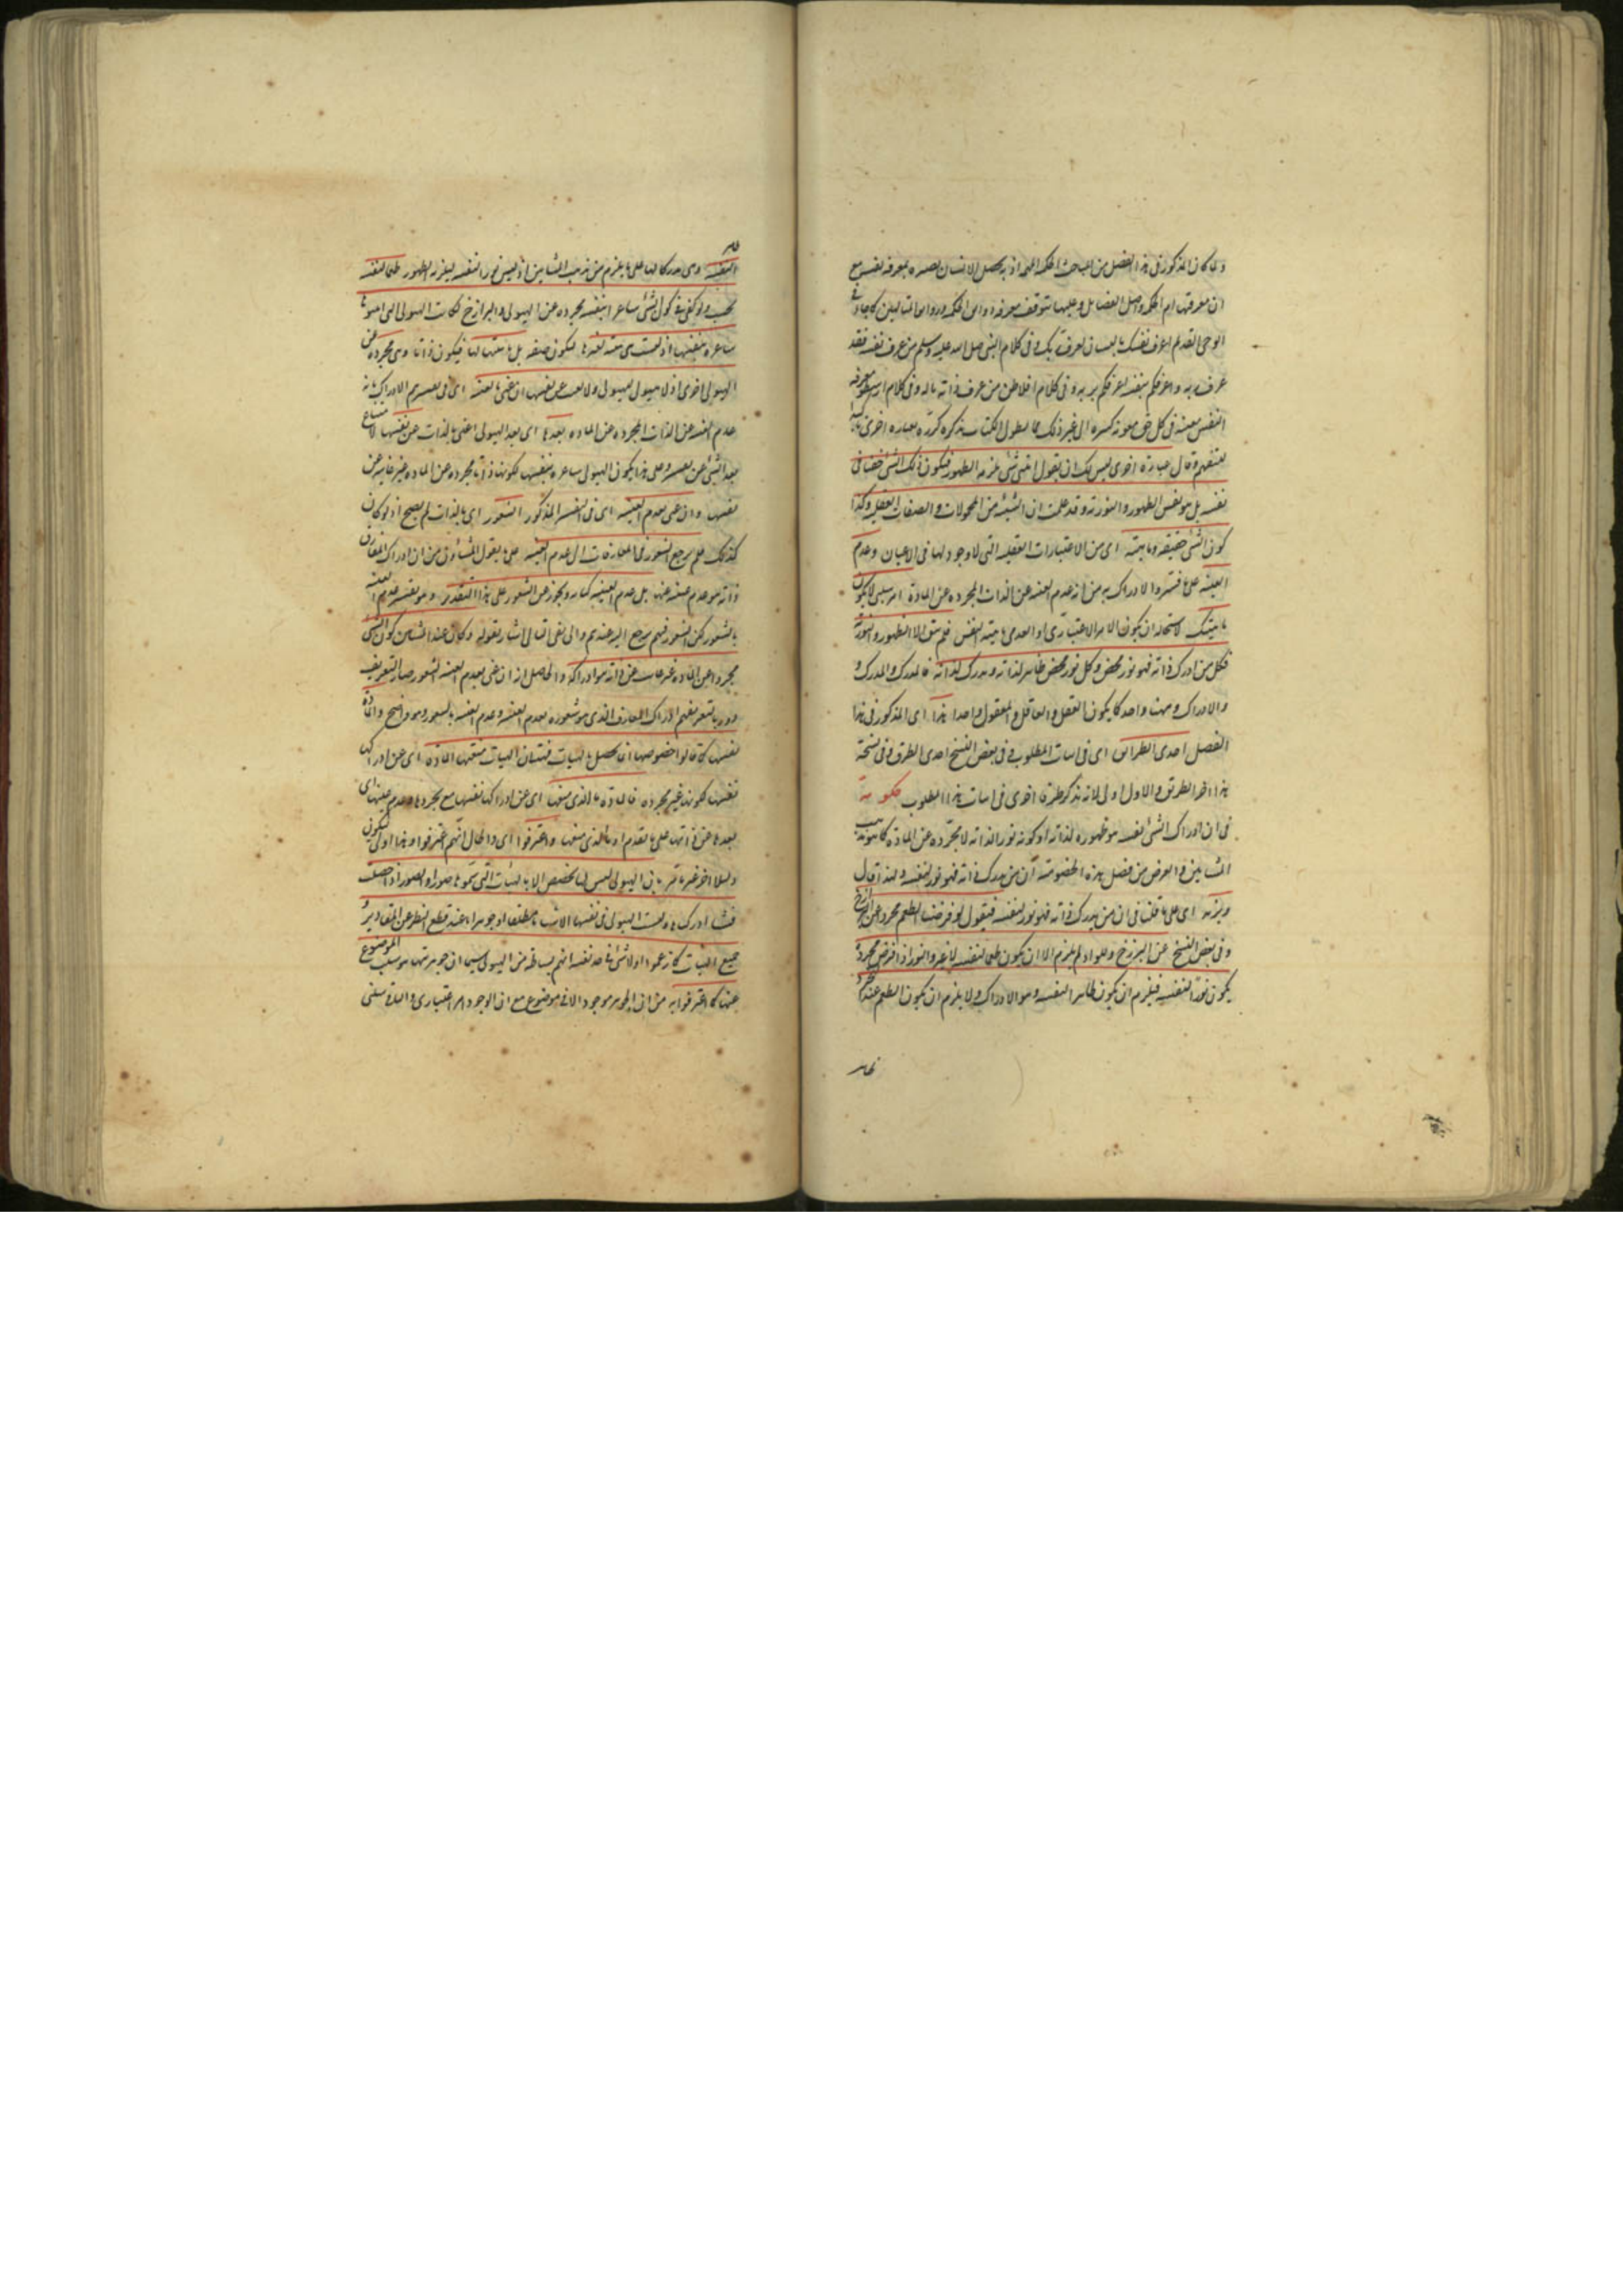 ولما كان المذكور فى هذا الفصل من المباحث الحكمة المهمة اذ به يحصل الانسان بمعرفة نفسه مع
ان معرفتها ام الحكمة واصل الفضائل وعليها تتوقف معرفة كما جاء فى
الوحى القديم اعرف نفسك يا انسان تعرف ربك وفى كلام النبى صلى الله عليه وسلم من عرف نفسه فقد
عرف ربه واعرفكم بنفسه اعرفكم بربه وفى كلام افلاطن من عرف ذاته تأله وفى كلام ارسطو معرفة
النفس معينة فى كل حق معونة كثيرة الى غير ذلك مما يطول الكتاب بذكره كرره بعبارة اخرى
وقال عبارة اخرى ليس لك ان تقول انيتى شىء يلزمه الظهور فيكون ذلك الشىء خفيا فى
نفسه بل هو نفس الظهور والنورية وقد علمت ان الشيئية من المحمولات والصفات العقلية وكذا
كون الشىء حقيقة وماهية اى من الاعتبارات العقلية التى لا وجود لها فى الاعيان وعدم
الغيبة على ما فسروا الادراك به من انه عدم الغيبة عن الذات المجردة عن المادة امر سلبى لا يكون
ماهيتك لاستحالة ان يكون الامر الاعتبارى او العدمى ماهية النفس فلم يبق الا الظهور والنورية
فكل من ادرك ذاته فهو نور محض وكل نور محض ظاهر لذاته ومدرك لذاته فالمدرك والمدرك و
والادراك وهنا واحد كما يكون العقل والعاقل والمعقول واحدا هذا اى المذكور فى هذا
الفصل احدى الطرائق اى فى اثبات المطلوب وفى بعض النسخ احدى الطرق وفى نسخة
هذا احد الطريق والاول اولى لانه يذكر طريقة اخرى فى اثبات هذا المطلوب حكومة
فى ان ادراك الشىء نفسه هو ظهوره لذاته او كونه نورا لذاته لا تجرده عن المادة كما هو مذهب
المشائين والغرض من فصل هذه الحكومة ان من يدرك ذاته فهو نور لنفسه ولهذا قال
ونزيد اى على ما قلنا فى ان من يدرك ذاته فهو نور لنفسه فنقول لو فرضنا الطعم مجردا عن البرازخ
وفى بعض النسخ عن البرزخ والمواد لم يلزم الا ان يكون طعما لنفسه لا غير والنور اذا فرض مجردا
يكون نورا لنفسه فيلزم ان يكون ظاهرا لنفسه وهو الادراك ولا يلزم ان يكون الطعم عند التجرد
ظاهر
ظاهر
لنفسه وهى مدركا لها على ما يلزم من مذهب المشائين اذ ليس نورا لنفسه ليلزمه الظهور طعما لنفسه
فحسب ولو كفى فى كون الشىء شاعرا بنفسه تجرده عن الهيولى والبرازخ لكانت الهيولى التى اثبتوها
شاعرة بنفسها اذ ليست هى هيئة لغيرها لتكون صفة بل ماهيتها لها فيكون ذاتا وهى مجردة عن
الهيولى اخرى اذ لا هيولى للهيولى ولا تغيب عن نفسها ان عنى بالغيبة اى فى تفسيرهم الادراك بانه
عدم الغيبة عن الذات المجردة عن المادة بعدها اى بعد الهيولى اعنى بالذات عن نفسها لامتناع
بعد الشىء عن نفسه وعلى هذا يكون الهيولى شاعرة بنفسها لكونها ذاتا مجردة عن المادة غير غائبة عن
نفسها وان عنى بعدم الغيبة اى فى التفسير المذكور الشعور اى بالذات لم يصح اذ لو كان
كذلك فلم يرجع الشعور فى المفارقات الى عدم الغيبة على ما يقول المشاؤون من ان ادراك المفارق
ذاته هو عدم غيبته عنها بل عدم الغيبة كناية وتجوز عن الشعور على هذا التقدير وهو تفسير عدم الغيبة
بالشعور لكن الشعور فيهم يرجع اليه عندهم والى نفى التالى اشار بقوله وكان عند المشائين كون الشىء
مجردا عن المادة غير غائب عن ذاته هو ادراكه والحاصل انه ان عنى بعدم الغيبة الشعور صار التعريف
دوريا لتعريفهم ادراك المفارق الذى هو شعوره بعدم الغيبة وعدم الغيبة بالشعور وهو واضح والمادة
نفسها كما قالوا خصوصها انما تحصل بالهيئات فهب ان الهيئات منعتها المادة اى عن ادراكها
نفسها لكونها غير مجردة فالمادة ما الذى منعها اى عن ادراكها نفسها مع تجردها وعدم غيبتها اى
بعدها عن ذاتها على ما تقدم او ما الذى منعها واعترفوا اى والحال انهم اعترفوا وهذا اولى ليكون
دليلا اخر غير ما مر بان الهيولى ليس لها تخصص الا بالهيئات التى سموها صورا والصور اذا حصلت
فينا ادركناها وليست الهيولى فى نفسها الا شيئا مطلقا او جوهرا ما عند قطع النظر عن المقادير و
جميع الهيئات كما زعموا ولا شىء فى حد نفسه اتم بساطة من الهيولى سيما ان جوهريتها هو سلب الموضوع
عنها كما اعترفوا به من ان الجوهر موجود لا فى موضوع مع ان الوجود امر اعتبارى والباقى سلبى